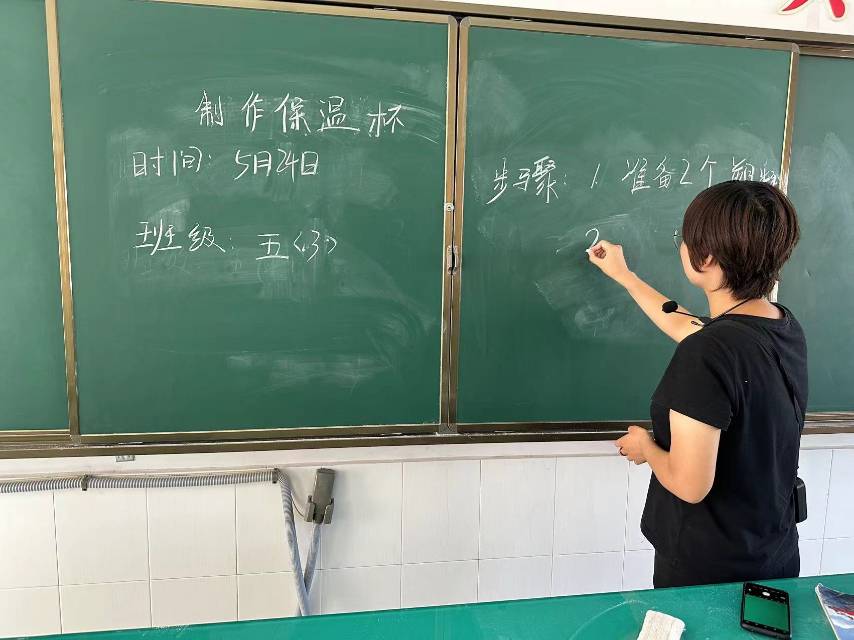 制作保温杯
时间：5月24日
班级：五〈3〉
步骤：1. 准备2个塑料
2